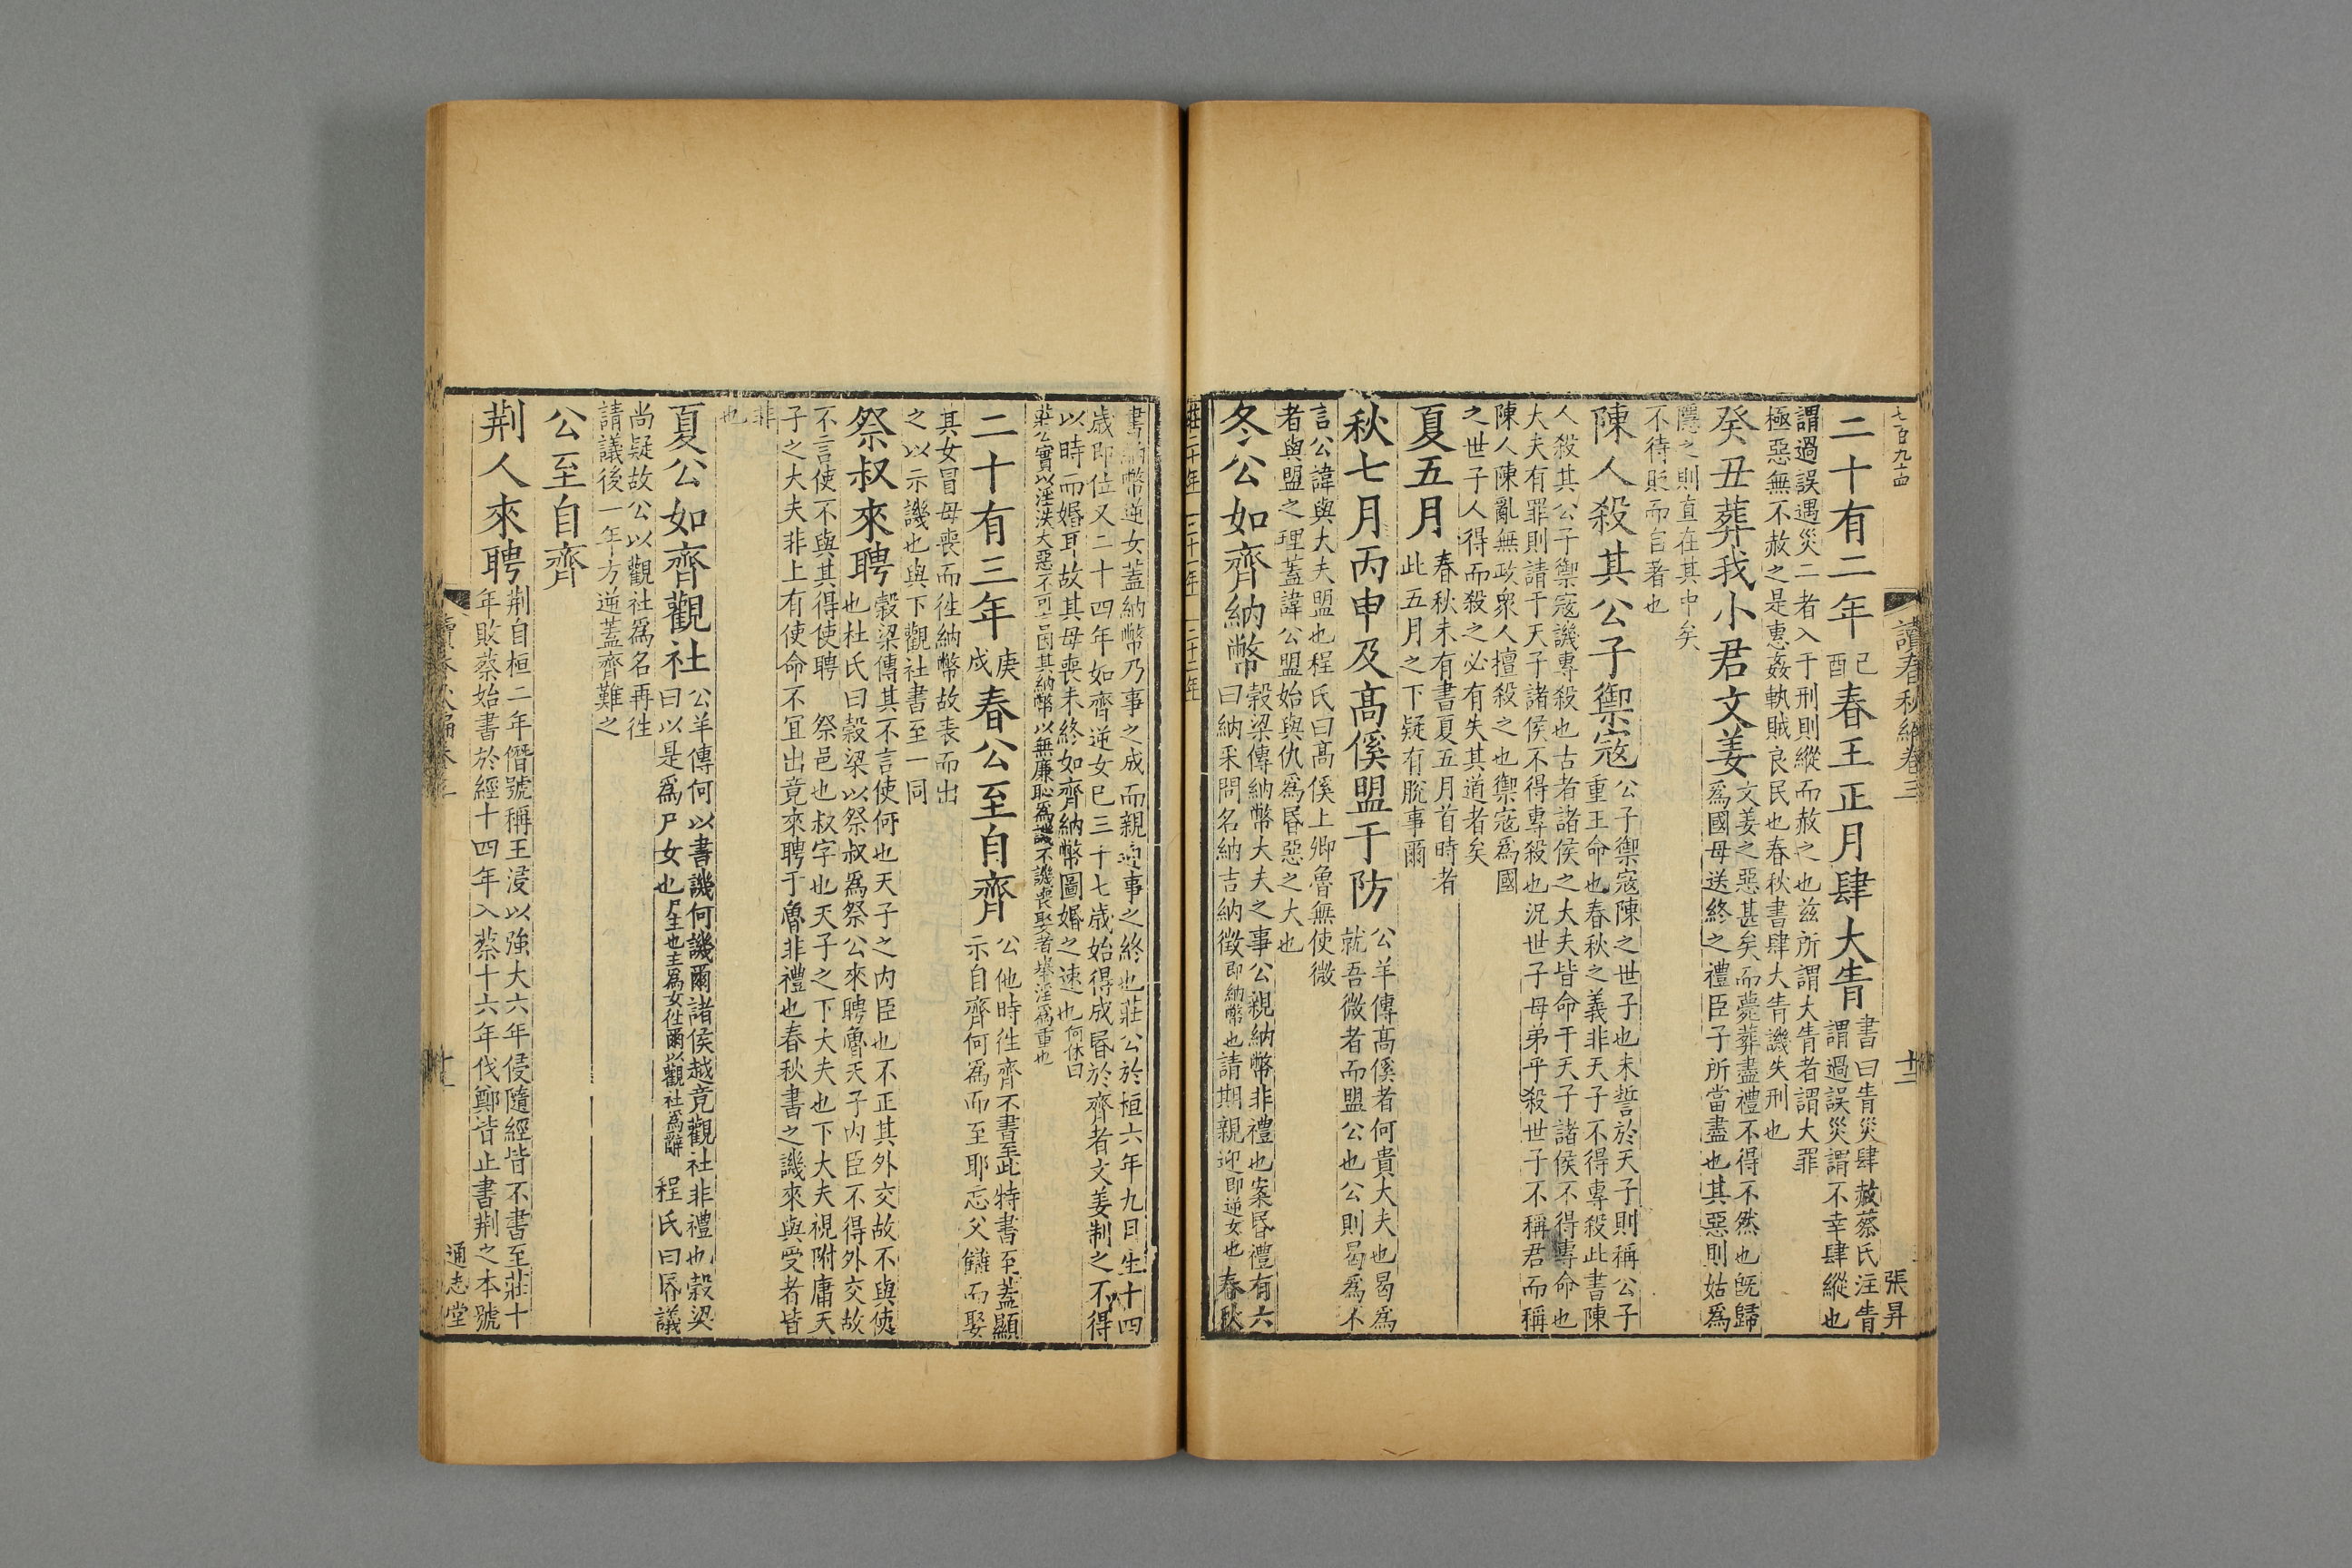 七百九十四
讀春秋編卷三
十二
張昇
二十有二年己酉春王正月肆大眚書曰眚災肆赦蔡氏注眚
謂過誤災謂不幸肆縱也
謂過誤遇災二者入于刑則縱而赦之也兹所謂大眚者謂大罪
極惡無不赦之是惠姦執賊良民也春秋書肆大眚譏失刑也
癸丑葬我小君文姜文姜之惡甚矣而薨葬盡禮不得不然也旣歸
爲國母送終之禮臣子所當盡也其惡則姑爲
隱之則直在其中矣
不待貶而自著也
陳人殺其公子禦寇公子禦寇陳之世子也未誓於天子則稱公子
重王命也春秋之義非天子不得專殺此書陳
人殺其公子禦寇譏專殺也古者諸侯之大夫皆命于天子諸侯不得專命也
大夫有罪則請于天子諸侯不得專殺也況世子母弟乎殺世子不稱君而稱
陳人陳亂無政衆人擅殺之也禦寇爲國
之世子人得而殺之必有失其道者矣
夏五月春秋未有書夏五月首時者
此五月之下疑有脫事爾
秋七月丙申及高傒盟于防公羊傳高傒者何貴大夫也曷爲
就吾微者而盟公也公則曷爲不
言公諱與大夫盟也程氏曰高傒上卿魯無使微
者與盟之理蓋諱公盟始與仇爲昬惡之大也
冬公如齊納幣穀梁傳納幣大夫之事公親納幣非禮也案昬禮有六
曰納采問名納吉納徵即納幣也請期親迎即逆女也春秋
莊二十年 二十一年 二十二年
書納幣逆女蓋納幣乃事之成而親迎事之終也莊公於桓六年九日生十四
歲即位又二十四年如齊逆女已三十七歲始得成昬於齊者文姜制之不得
以時而婚耳故其母喪未終如齊納幣圖婚之速也何休曰
莊公實以淫泆大惡不可言因其納幣以無廉恥爲譏不譏喪娶者舉淫爲重也
二十有三年庚戌春公至自齊公他時徃齊不書至此特書至蓋顯
示自齊何爲而至耶忘父讎而娶
其女冒母喪而徃納幣故表而出
之以示譏也與下觀社書至一同
祭叔來聘穀梁傳其不言使何也天子之内臣也不正其外交故不與使
也杜氏曰穀梁以祭叔爲祭公來聘魯天子内臣不得外交故
不言使不與其得使聘 祭邑也叔字也天子之下大夫也下大夫視附庸天
子之大夫非上有使命不宜出竟來聘于魯非禮也春秋書之譏來與受者皆
非
也
夏公如齊觀社公羊傳何以書譏何譏爾諸侯越竟觀社非禮也穀梁
曰以是爲尸女也尸主也主爲女徃爾以觀社爲辭 程氏曰昬議
尚疑故公以觀社爲名再徃
請議後一年方逆蓋齊難之
公至自齊
荆人來聘荆自桓二年僭號稱王浸以強大六年侵隨經皆不書至莊十
年敗蔡始書於經十四年入蔡十六年伐鄭皆止書荆之本號
讀春秋編卷三
十二
通志堂